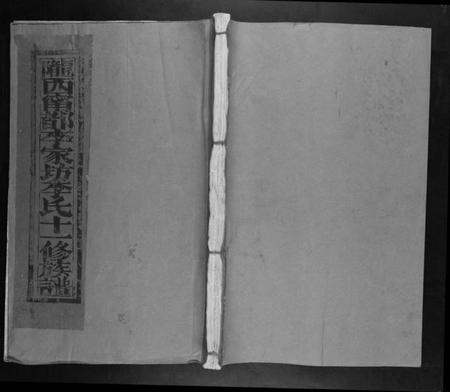 隴西甯部李家坊李氏十一修族譜